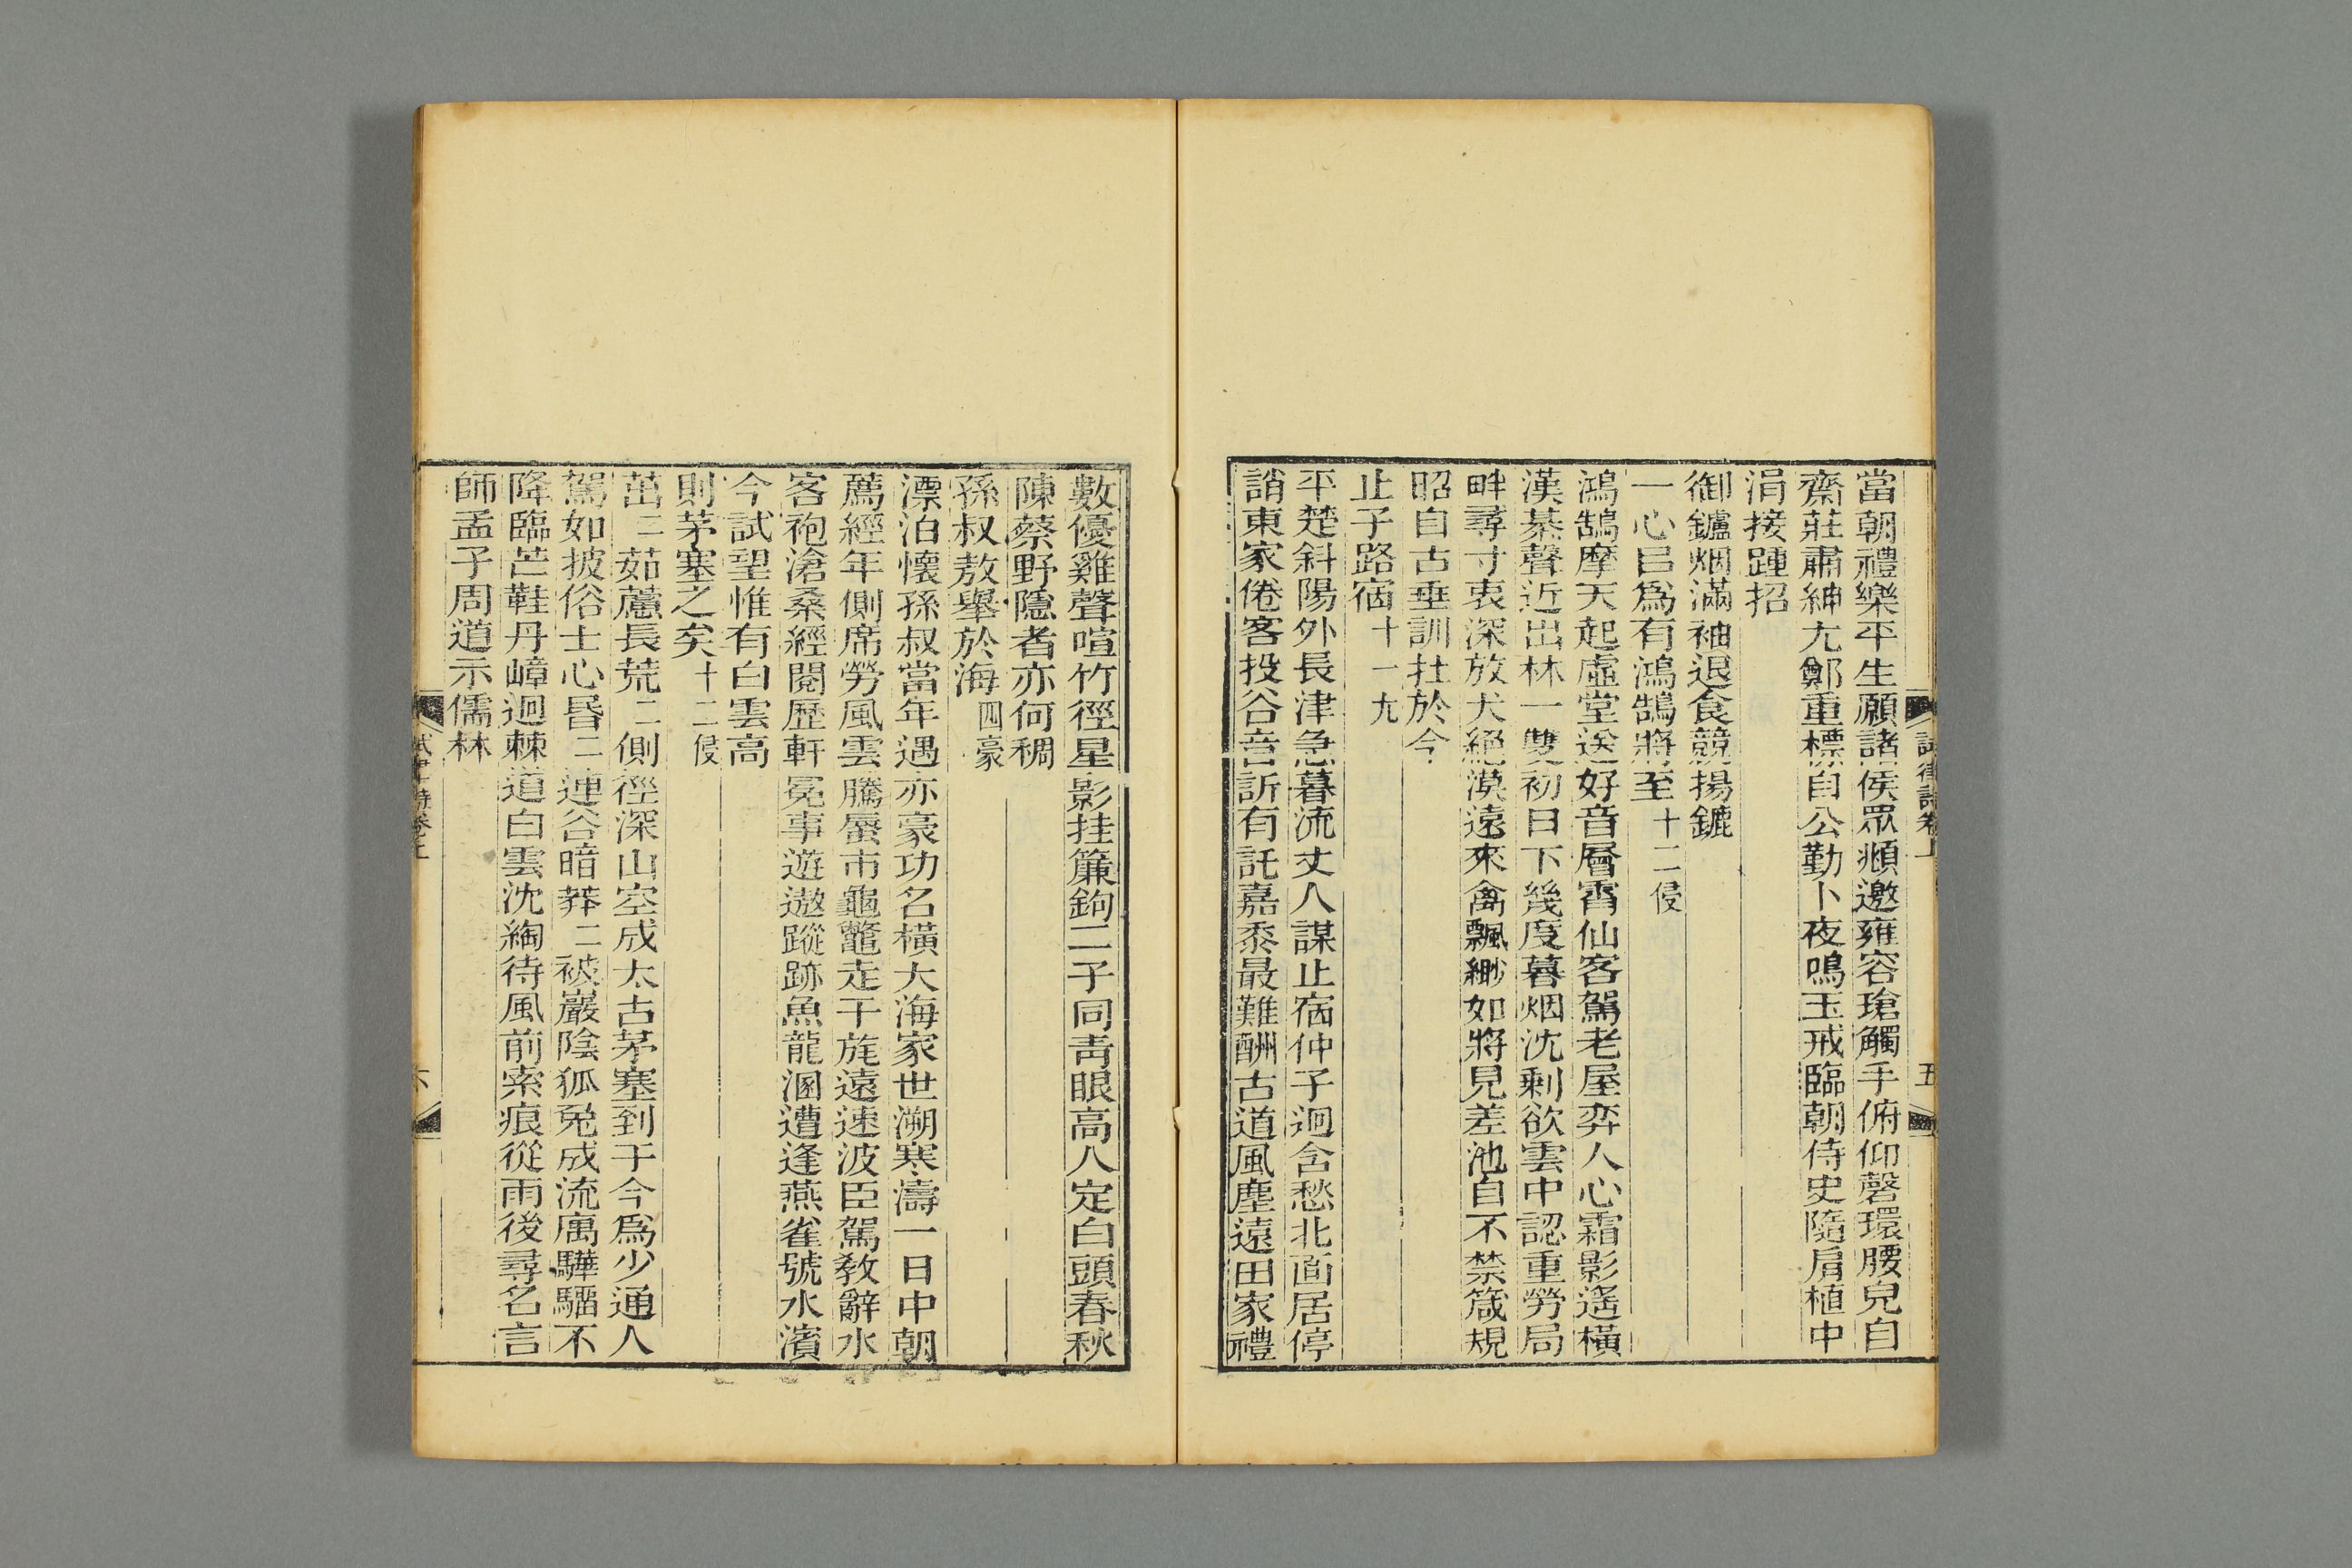 當朝禮樂平生願諸侯眾頫邀雍容瑲觸手俯仰磬環腰皃自
齋莊肅紳尢鄭重標自公勤卜夜鳴玉戒臨朝侍史隨肩植中
涓接踵招
御鑪烟滿袖退食競揚鑣
一心㠯爲有鴻鵠將至十二侵
鴻鵠摩天起虛堂送好音層霄仙客駕老屋弈人心霜影遙橫
漢棊聲近出林一雙初日下幾度暮烟沈剩欲雲中認重勞局
畔尋寸衷深放犬絕漠遠來禽飄緲如將見差池自不禁箴規
昭自古垂訓㧈於今
止子路宿十一尢
平楚斜陽外長津急暮流丈人謀止宿仲子迥含愁北面居停
誚東家倦客投谷音訢有託嘉黍最難酬古道風塵遠田家禮
數優雞聲喧竹徑星影挂簾鉤二子同靑眼高八定白頭春秋
陳蔡野隱者亦何稠
孫叔敖舉於海四豪
漂泊懷孫叔當年遇亦豪功名橫大海家世溯寒濤一日中朝
薦經年側席勞風雲騰蜃市龜鼈走干旄遠速波臣駕敎辭水
客袍滄桑經閱歷軒冕事遊遨蹤跡魚龍溷遭逢燕雀號水濱
今試望惟有白雲高
則茅塞之矣十二侵
茁二茹藘長荒二側徑深山空成太古茅塞到于今爲少通人
駕如披俗士心昏二連谷暗莽二被巖陰狐兔成流寓驊騮不
降臨芒鞋丹嶂迥棘道白雲沈綯待風前索痕從雨後尋名言
師孟子周道示儒林